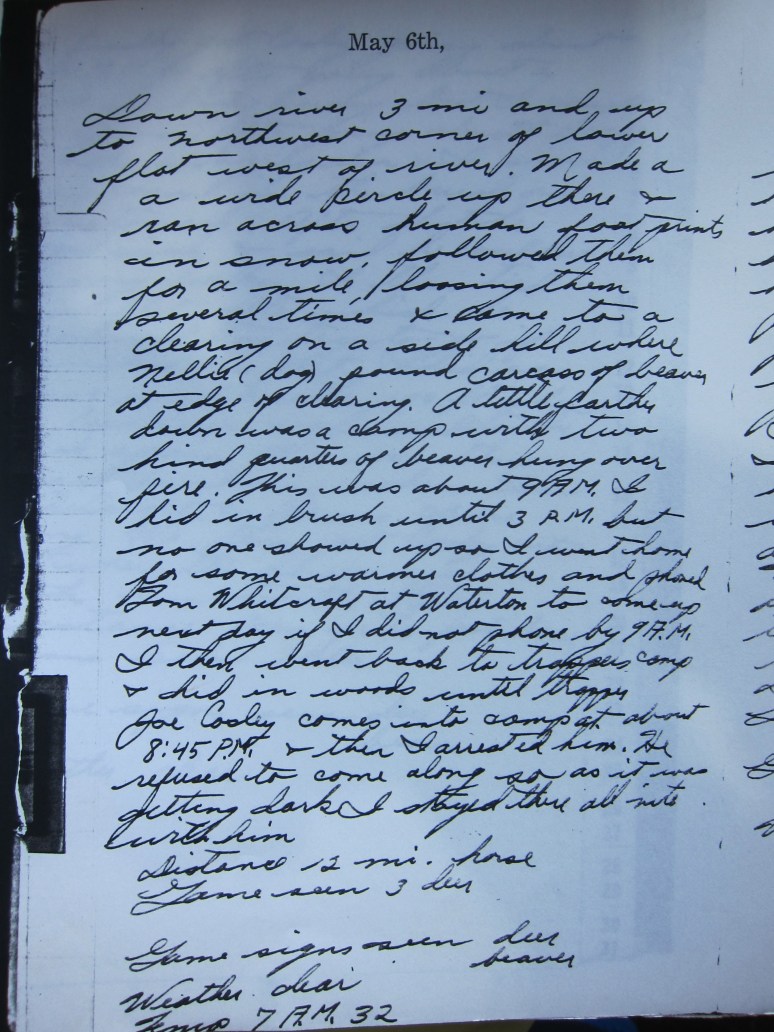 May 6th,
Down river 3 mi and up
to northwest corner of lower
flat west of river. Made a
a wide circle up there &
ran across human foot prints
in snow, followed them
for a mile, loosing them
several times & came to a
clearing on a side hill where
Nellie (dog) found carcass of beaver
at edge of clearing. A little farther
down was a camp with two
hind quarters of beaver hung over
fire. This was about 9 A.M. I
hid in brush until 3 P.M. but
no one showed up so I went home
for some warmer clothes and phoned
Tom Whitcraft at Waterton to come up
next day if I did not phone by 9 A.M.
I then went back to trappers camp
& hid in woods until trapper
Joe Cosley comes into camp at about
8:45 P.M. & then I arrested him. He
refused to come along so as it was
getting dark I stayed there all nite
with him
Distance 12 mi. horse
Game seen 3 deer
Game signs seen deer
beaver
Weather clear
Temp 7 A.M. 32